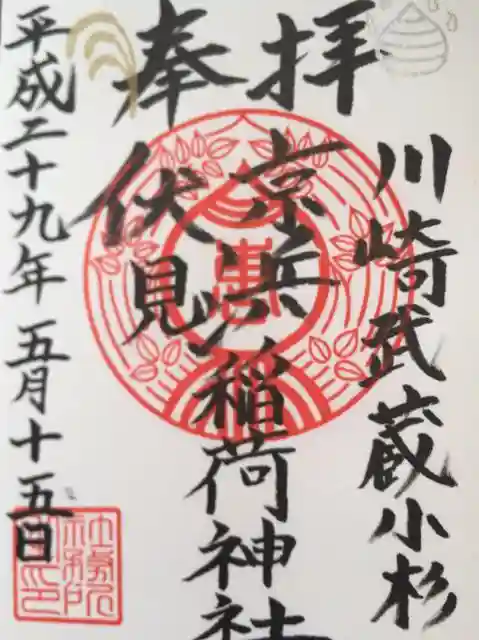 奉拝
川崎武蔵小杉
京浜
伏見
稲荷神社
平成二十九年五月十五日
惠
社務所
之印